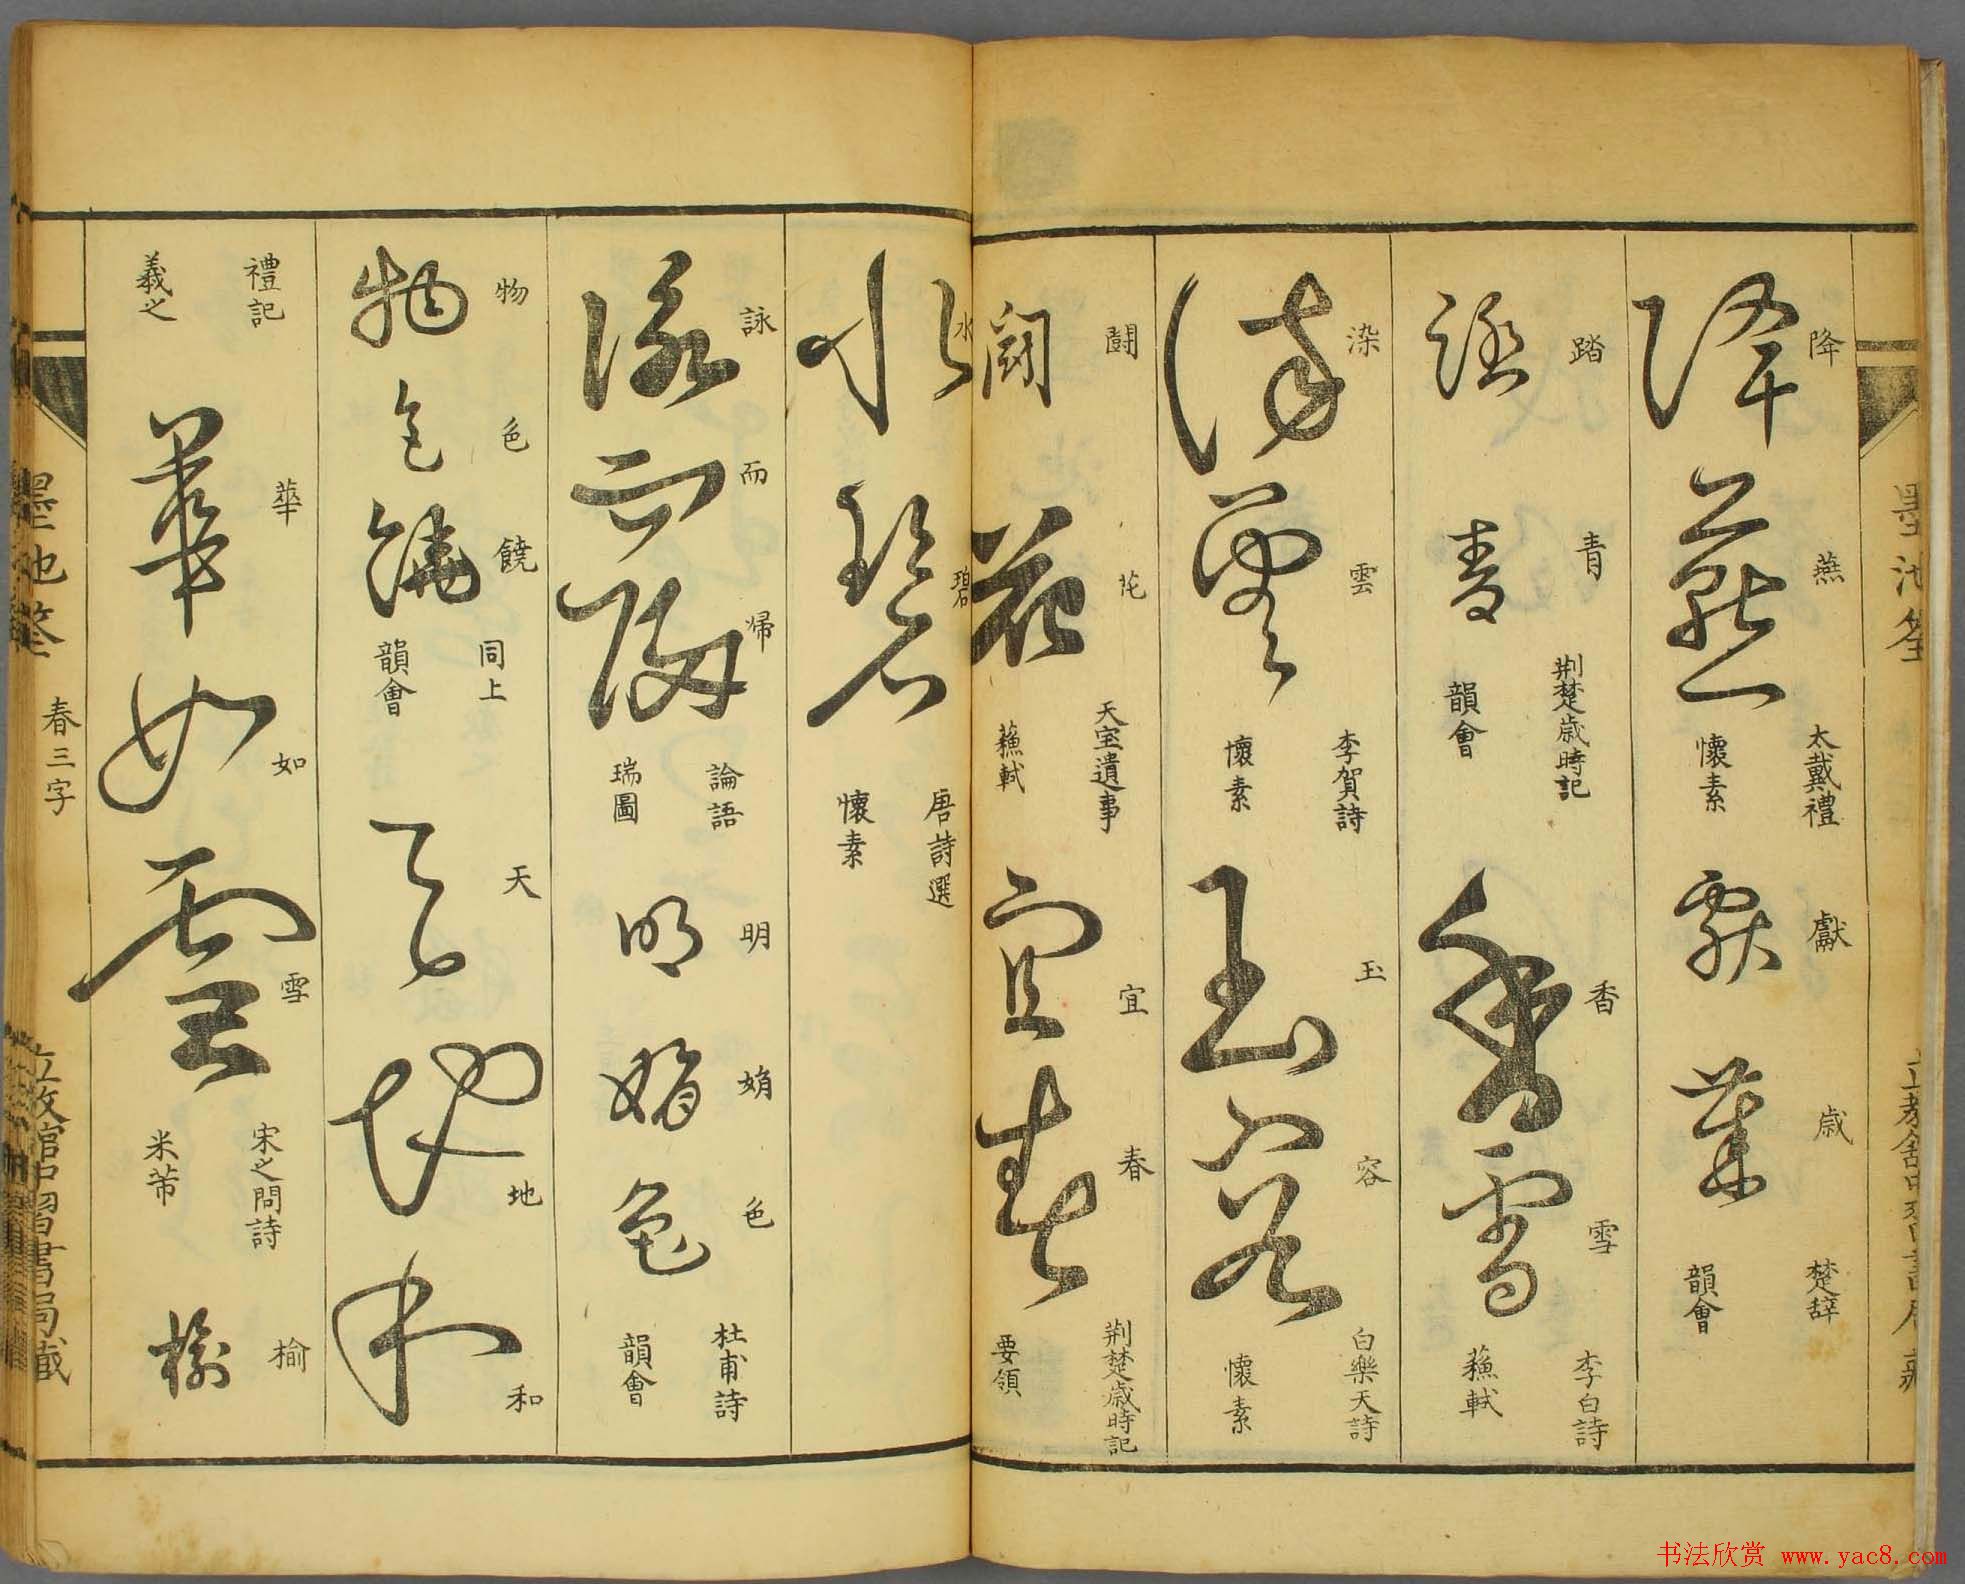 降燕 太戴禮 懷素 獻歲 楚辞 韻會
踏青 荆楚歳時記 韻會 香雪 李白詩 蘓軾
染雲 李賀詩 懷素 玉容 白樂天詩 懷素
闘花 天宝遺事 蘓軾 宜春 荆楚歳時記 要領
水碧 唐詩選 懷素
詠而帰 論語 瑞圖 明娟色 杜甫詩 韻會
物色饒 同上 韻會 天地和
禮記 羲之 華如雪 宋之問詩 米芾 榆
墨池筌 春三字
书法欣赏 www.yac8.com